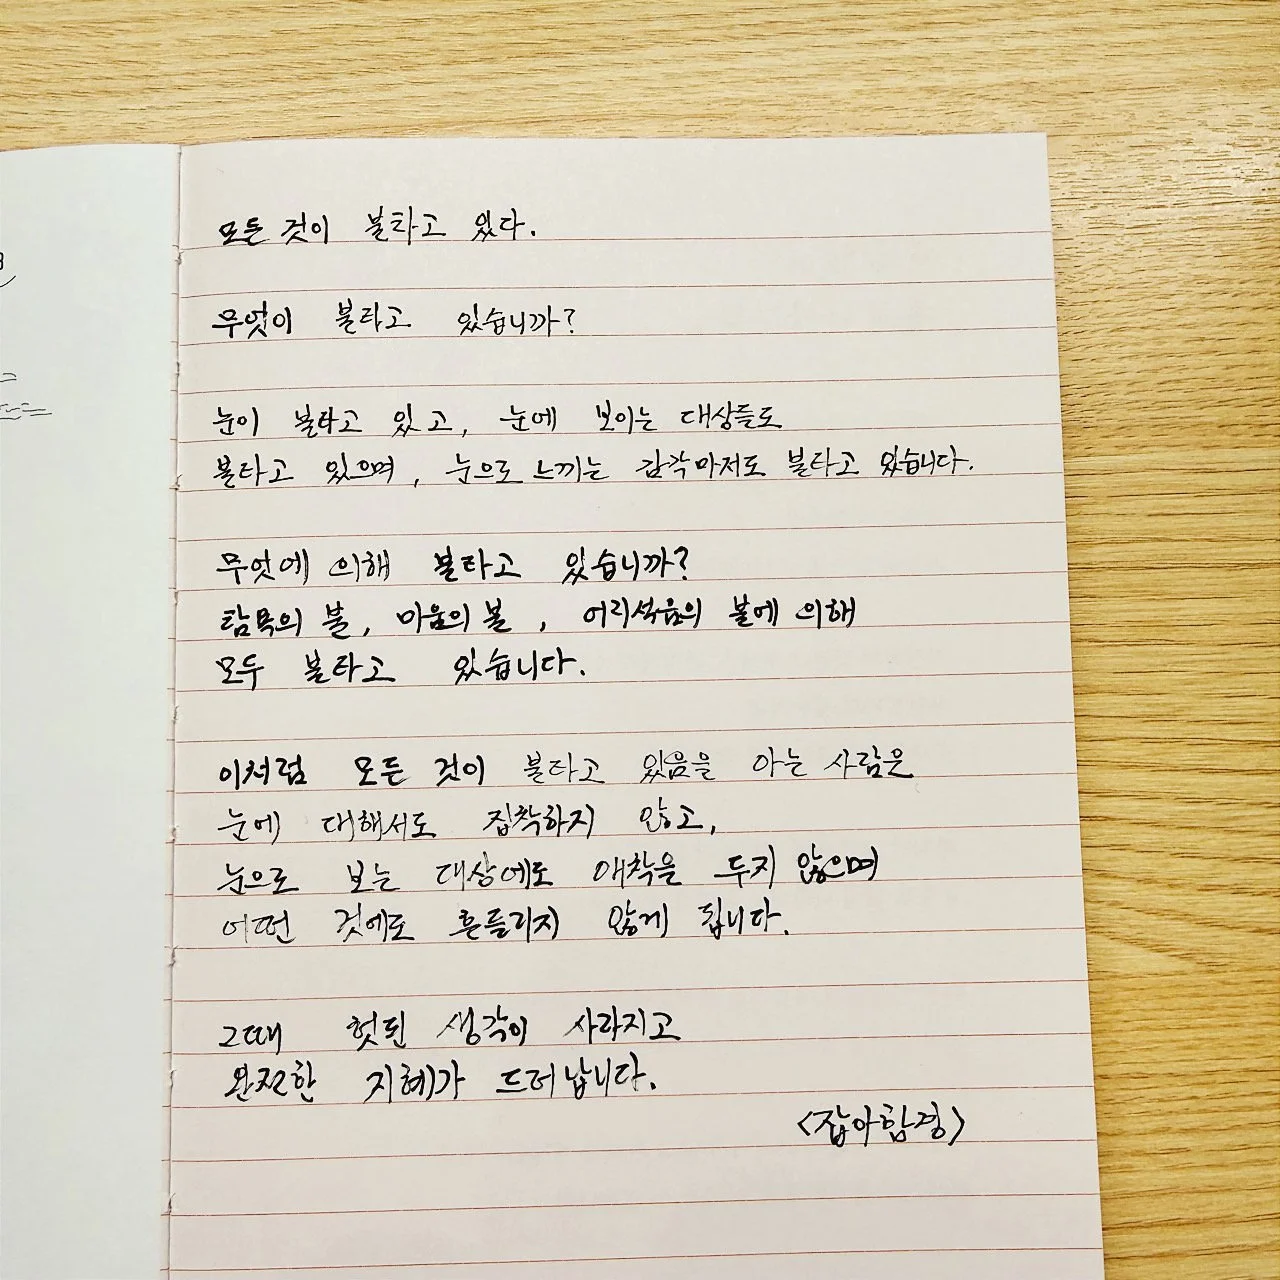 모든 것이 불타고 있다.
무엇이 불타고 있습니까?
눈이 불타고 있고, 눈에 보이는 대상들도
불타고 있으며, 눈으로 느끼는 감각마저도 불타고 있습니다.
무엇에 의해 불타고 있습니까?
탐욕의 불, 미움의 불, 어리석음의 불에 의해
모두 불타고 있습니다.
이처럼 모든 것이 불타고 있음을 아는 사람은
눈에 대해서도 집착하지 않고,
눈으로 보는 대상에도 애착을 두지 않으며
어떤 것에도 흔들리지 않게 됩니다.
그때 헛된 생각이 사라지고
완전한 지혜가 드러납니다.
<잡아함경>